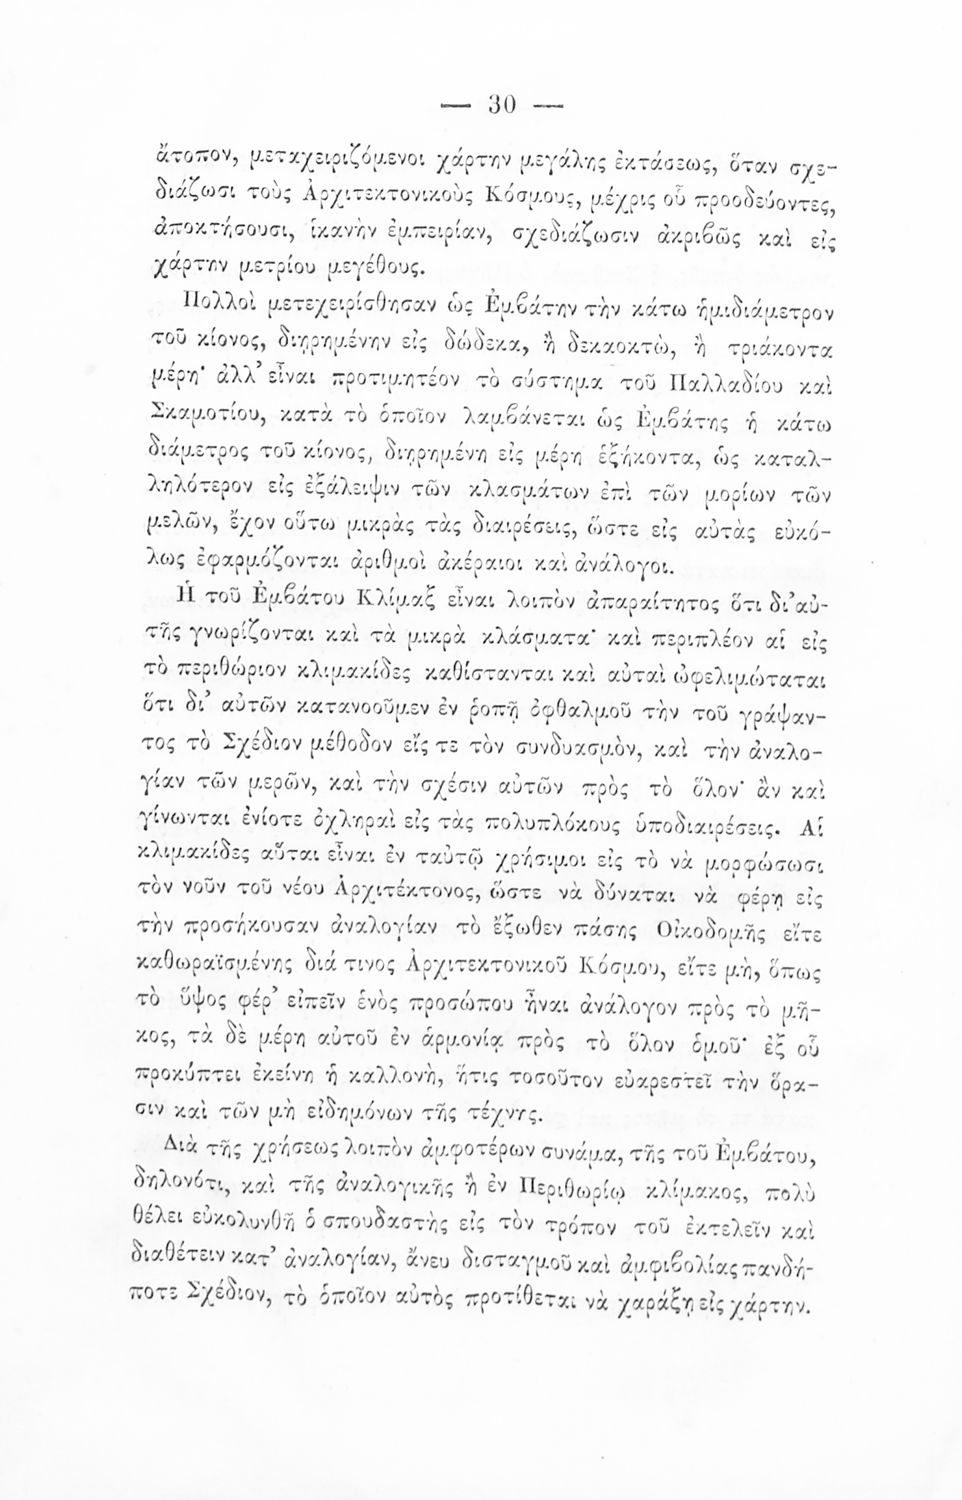 — 30 —
ἄτοπον, μεταχειριζόμενοι χάρτην μεγάλης ἐκτάσεως, ὅταν σχε-
διάζωσι τοὺς Ἀρχιτεκτονικοὺς Κόσμους, μέχρις οὗ προοδεύοντες,
ἀποκτήσουσι, ἱκανὴν ἐμπειρίαν, σχεδιάζωσιν ἀκριβῶς καὶ εἰς
χάρτην μετρίου μεγέθους.
Πολλοὶ μετεχειρίσθησαν ὡς Ἐμβάτην τὴν κάτω ἡμιδιάμετρον
τοῦ κίονος, διῃρημένην εἰς δώδεκα, ἢ δεκαοκτὼ, ἢ τριάκοντα
μέρη· ἀλλ’ εἶναι προτιμητέον τὸ σύστημα τοῦ Παλλαδίου καὶ
Σκαμοτίου, κατὰ τὸ ὁποῖον λαμβάνεται ὡς Ἐμβάτης ἡ κάτω
διάμετρος τοῦ κίονος, διῃρημένη εἰς μέρη ἑξήκοντα, ὡς καταλ-
ληλότερον εἰς ἐξάλειψιν τῶν κλασμάτων ἐπὶ τῶν μορίων τῶν
μελῶν, ἔχον οὕτω μικρὰς τὰς διαιρέσεις, ὥστε εἰς αὐτὰς εὐκό-
λως ἐφαρμόζονται ἀριθμοὶ ἀκέραιοι καὶ ἀνάλογοι.
Ἡ τοῦ Ἐμβάτου Κλίμαξ εἶναι λοιπὸν ἀπαραίτητος ὅτι δι’ αὐ-
τῆς γνωρίζονται καὶ τὰ μικρὰ κλάσματα· καὶ περιπλέον αἱ εἰς
τὸ περιθώριον κλιμακίδες καθίστανται καὶ αὐταὶ ὠφελιμώταται
ὅτι δι’ αὐτῶν κατανοοῦμεν ἐν ῥοπῇ ὀφθαλμοῦ τὴν τοῦ γράψαν-
τος τὸ Σχέδιον μέθοδον εἴς τε τὸν συνδυασμὸν, καὶ τὴν ἀναλο-
γίαν τῶν μερῶν, καὶ τὴν σχέσιν αὐτῶν πρὸς τὸ ὅλον· ἂν καὶ
γίνωνται ἐνίοτε ὀχληραὶ εἰς τὰς πολυπλόκους ὑποδιαιρέσεις. Αἱ
κλιμακίδες αὗται εἶναι ἐν ταὐτῷ χρήσιμοι εἰς τὸ νὰ μορφώσωσι
τὸν νοῦν τοῦ νέου Ἀρχιτέκτονος, ὥστε νὰ δύναται νὰ φέρῃ εἰς
τὴν προσήκουσαν ἀναλογίαν τὸ ἔξωθεν πάσης Οἰκοδομῆς εἴτε
καθωραϊσμένης διά τινος Ἀρχιτεκτονικοῦ Κόσμου, εἴτε μὴ, ὅπως
τὸ ὕψος φέρ’ εἰπεῖν ἑνὸς προσώπου ἦναι ἀνάλογον πρὸς τὸ μῆ-
κος, τὰ δὲ μέρη αὐτοῦ ἐν ἁρμονίᾳ πρὸς τὸ ὅλον ὁμοῦ· ἐξ οὗ
προκύπτει ἐκείνη ἡ καλλονὴ, ἥτις τοσοῦτον εὐαρεστεῖ τὴν ὅρα-
σιν καὶ τῶν μὴ εἰδημόνων τῆς τέχνης.
Διὰ τῆς χρήσεως λοιπὸν ἀμφοτέρων συνάμα, τῆς τοῦ Ἐμβάτου,
δηλονότι, καὶ τῆς ἀναλογικῆς ἢ ἐν Περιθωρίῳ κλίμακος, πολὺ
θέλει εὐκολυνθῆ ὁ σπουδαστὴς εἰς τὸν τρόπον τοῦ ἐκτελεῖν καὶ
διαθέτειν κατ’ ἀναλογίαν, ἄνευ δισταγμοῦ καὶ ἀμφιβολίας πανδή-
ποτε Σχέδιον, τὸ ὁποῖον αὐτὸς προτίθεται νὰ χαράξῃ εἰς χάρτην.